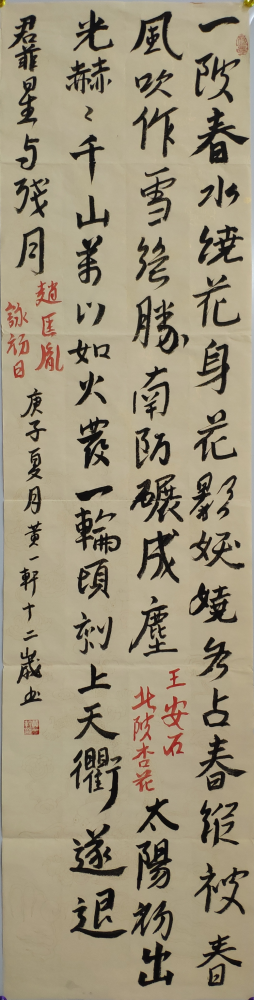 一陂春水繞花身花影妖嬈各占春縱被春
風吹作雪絕勝南陌碾成塵
王安石
北陂杏花
太陽初出
光赫〻千山萬山如火發一輪頃刻上天衢逐退
羣星与殘月
趙匡胤
詠初日
庚子夏月黃一軒十二歲书